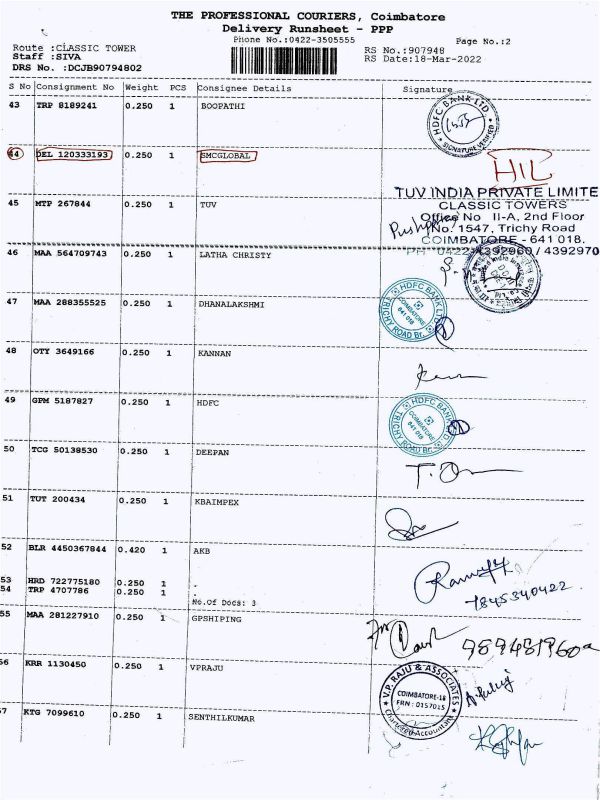 THE PROFESSIONAL COURIERS, Coimbatore
Delivery Runsheet - PPP
Phone No.:0422-3505555
Page No.:2
Route :CLASSIC TOWER
Staff :SIVA
DRS No. :DCJB90794802
RS No.:907948
RS Date:18-Mar-2022
S No Consignment No Weight PCS Consignee Details Signature
43 TRP 8189241 0.250 1 BOOPATHI
HDFC BANK LTD
SIGNATURE VERIFIED
44 DEL 120333193 0.250 1 SMCGLOBAL
HIL
45 MTP 267844 0.250 1 TUV
TUV INDIA PRIVATE LIMITE
CLASSIC TOWERS
Office No II-A, 2nd Floor
No. 1547, Trichy Road
COIMBATORE - 641 018.
PH 0422-4392960 / 4392970
46 MAA 564709743 0.250 1 LATHA CHRISTY
47 MAA 288355525 0.250 1 DHANALAKSHMI
HDFC BANK LTD
COIMBATORE
641 018
TRICHY ROAD Br.
48 OTY 3649166 0.250 1 KANNAN
49 GPM 5187827 0.250 1 HDFC
HDFC BANK LTD
COIMBATORE
641 018
TRICHY ROAD Br.
50 TCG S0138530 0.250 1 DEEPAN
51 TUT 200434 0.250 1 KBAIMPEX
52 BLR 4450367844 0.420 1 AKB
53 HRD 722775180 0.250 1 .
54 TRP 4707786 0.250 1 .
No.Of Docs: 3
7845340422
55 MAA 281227910 0.250 1 GPSHIPING
56 KRR 1130450 0.250 1 VPRAJU
V.P. RAJU & ASSOCIATES
COIMBATORE-18
FRN : 015701S
Chartered Accountant
57 KTG 7099610 0.250 1 SENTHILKUMAR